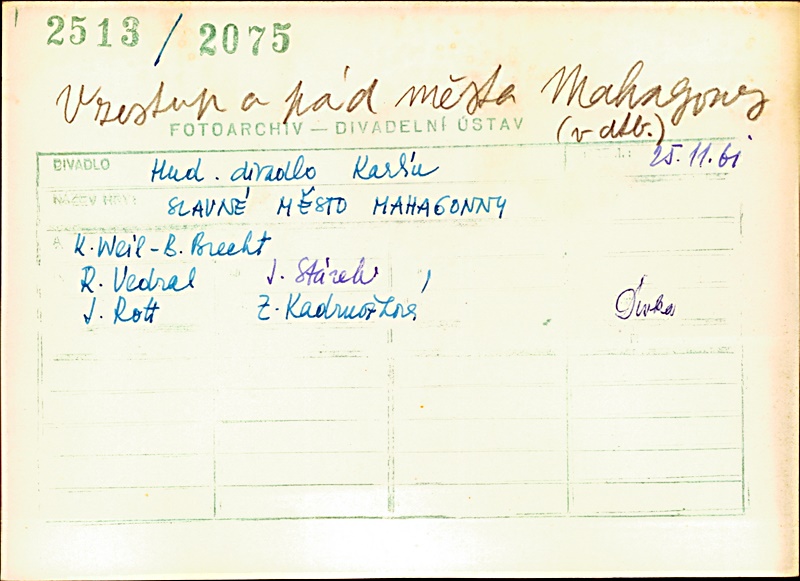 2513 / 2075
Vzestup a pád města Mahagony
(v dtb.)
FOTOARCHIV — DIVADELNÍ ÚSTAV
DIVADLO Hud. divadlo Karlín 25.11.61
NÁZEV HRY: SLAVNÉ MĚSTO MAHAGONNY
K. Weil - B. Brecht
R. Vedral J. Stárek
J. Rott Z. Kadrnožková Dívka